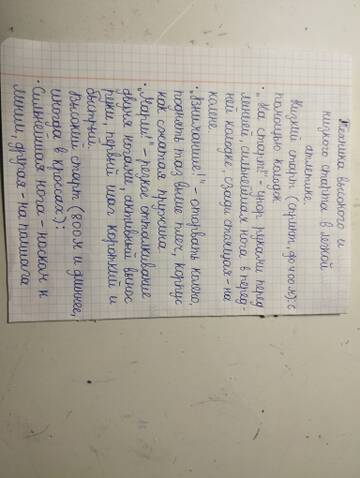 Техника высокого и
низкого старта в легкой
атлетике.
Низкий старт (спринт, до 400м): с
помощью колодок
• „На старт!" - упор руками перед
линией, сильнейшая нога в перед-
ней колодке, сзади стоящая - на
колене.
• „Внимание!" - оторвать колено,
поднять таз выше плеч, корпус
как сжатая пружина
• „Марш!" - резкое отталкивание
двумя ногами, активный вынос
руки, первый шаг короткий и
быстрый.
Высокий старт (800м и длиннее,
иногда в кроссах):
• Сильнейшая нога - носком к
линии, другая - на полшага